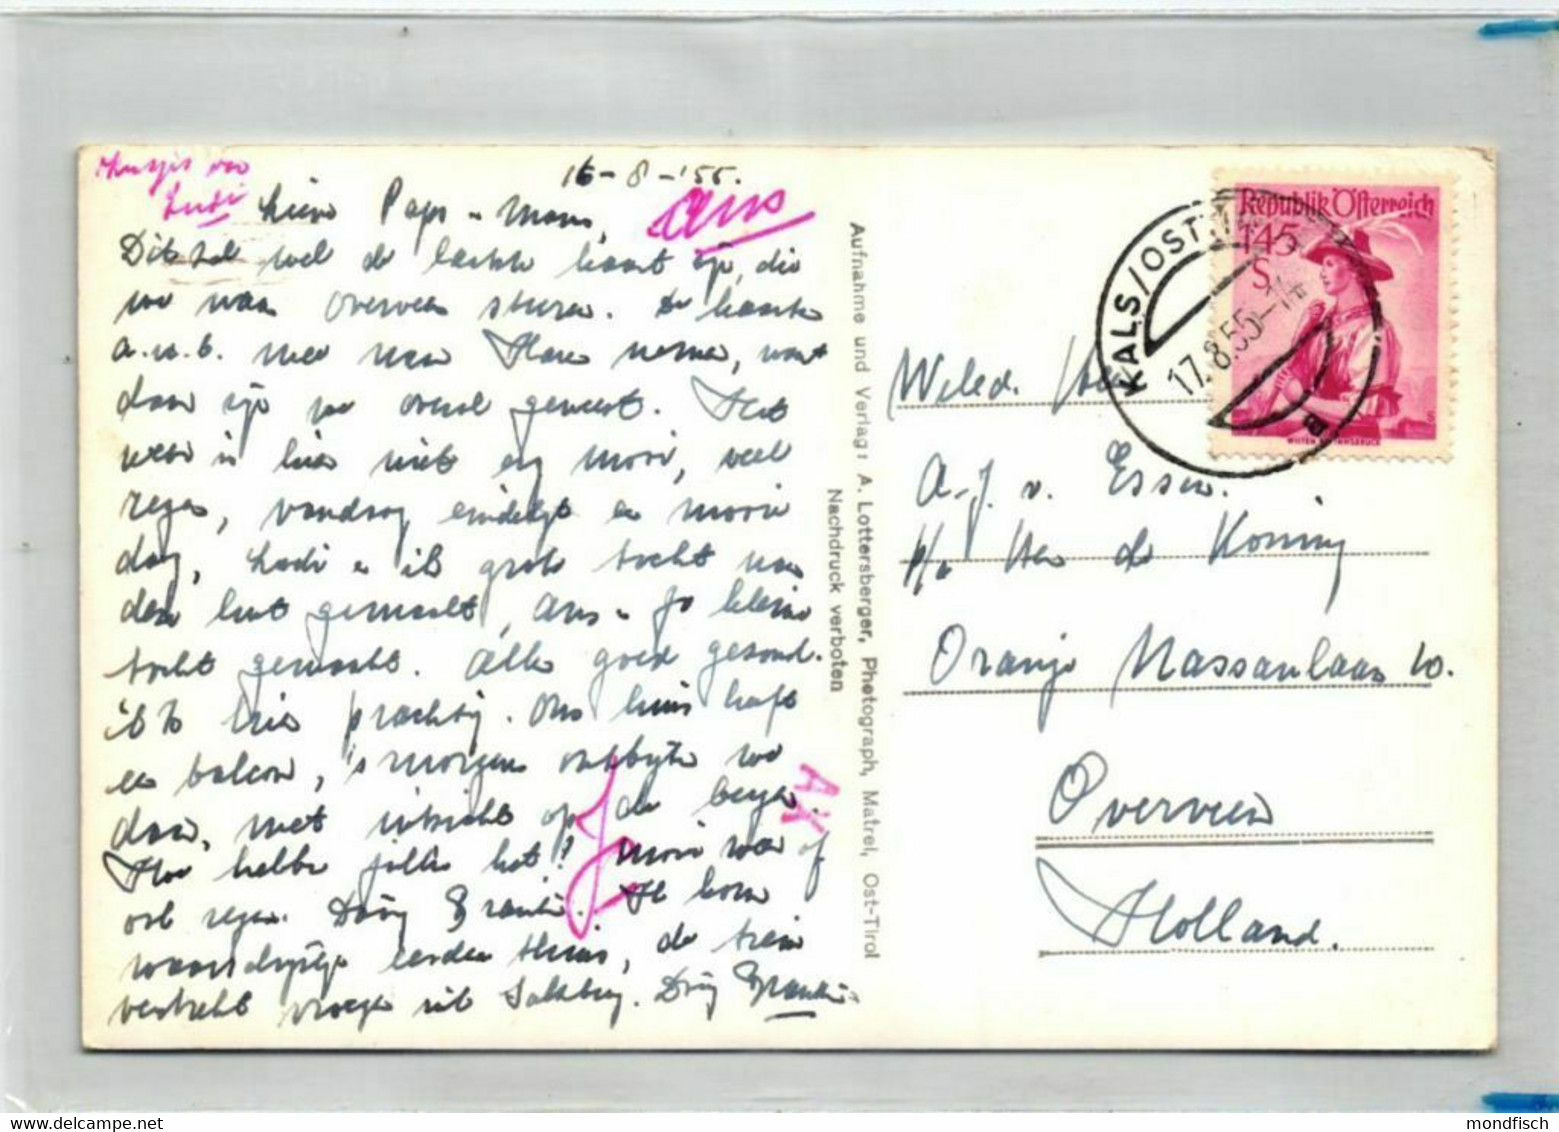 16-8-'55.
Lieve Paps - Mams,
Ans
Dit zal wel de laatste kaart zijn, die
we naar Overveen sturen. De kaarten
a.u.b. mee naar Huis nemen, want
daar zijn we overal geweest. Het
weer is hier niet erg mooi, veel
regen, vandaag eindelijk een mooie
dag, Ludi en ik grote tocht van
den hut gemaakt, Ans en Jo kleine
tocht gemaakt. Alles goed gezond.
is 't hier prachtig. Ons huis heeft
een balcon, 's morgens ontbijten we
daar, met uitzicht op de bergen.
Hoe hebben jullie het? Mooi weer of
ook regen. Dáág Frankie. Ik kom
waarschijnlijk eerder thuis, de trein
vertrekt vroeger uit Salzburg. Dáág Frankie
Ludi
Jo
Aufnahme und Verlag: A. Lottersberger, Photograph, Matrei, Ost-Tirol
Nachdruck verboten
Republik Österreich
1.45
S
WILTEN BEI INNSBRUCK
KALS/OSTTIROL
17.8.55-14
a
Weled. Heer
A.J. v. Essen.
p/a Heer de Koning
Oranje Nassaulaan 10.
Overveen
Holland.
mondfisch